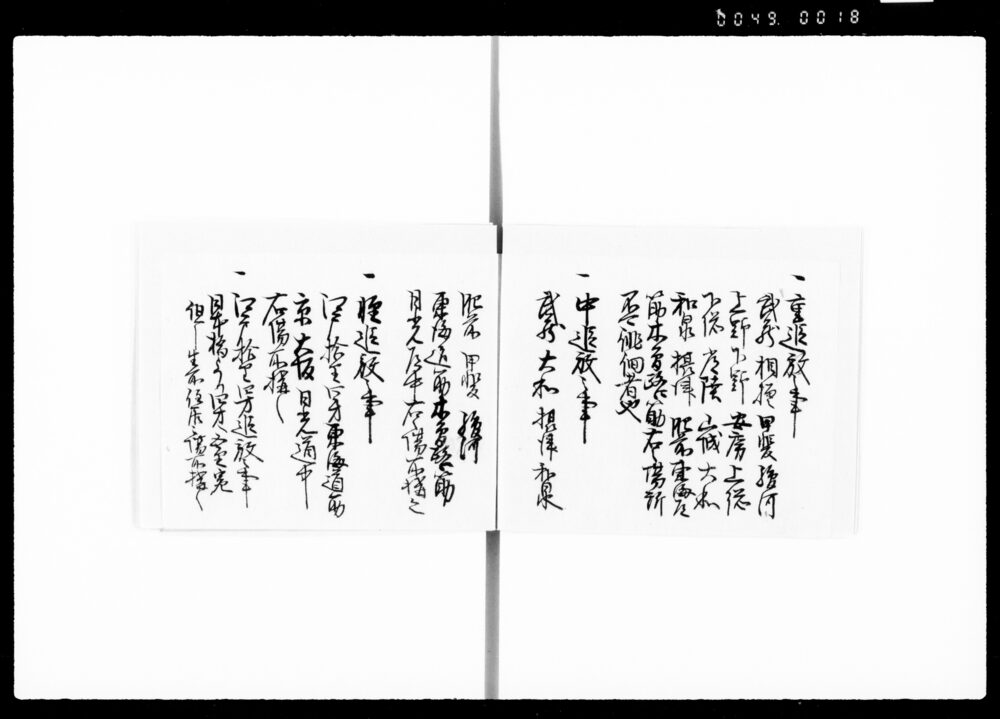 0049.0018
一 重追放之事
武蔵 相摸 甲斐 駿河
上野 下野 安房 上総
下総 常陸 山城 大和
和泉 摂津 肥前 東海道
筋 木曽路筋 右之場所
不可徘徊者也
一 中追放之事
武蔵 大和 摂津 和泉
肥前 甲斐 駿河
東海道筋 木曽路筋
日光道中 右之場所構之
一 軽追放之事
江戸拾里四方 東海道筋
京 大坂 日光道中
右場所構
一 江戸拾里四方追放之事
日本橋より四方五里宛
但し 生所住居之場所構